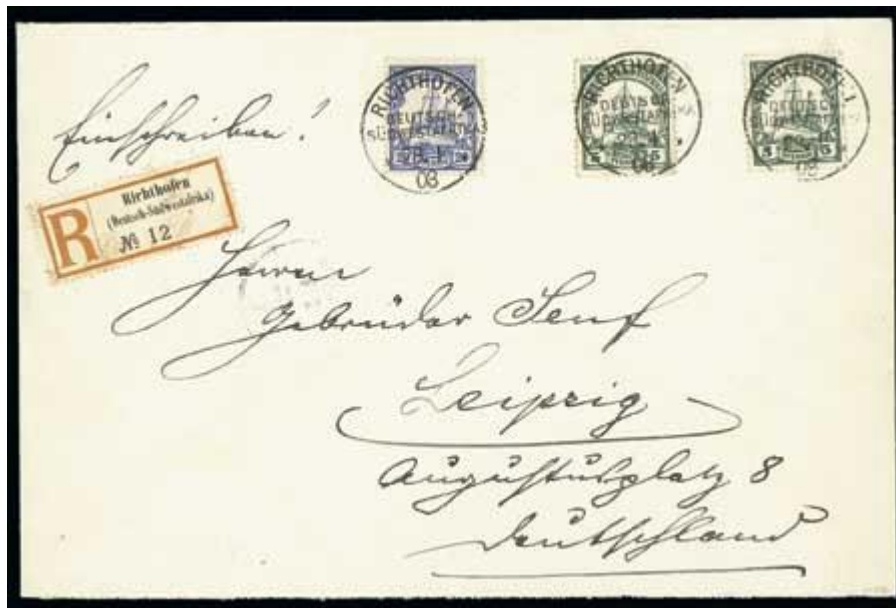 RICHTHOFEN
DEUTSCH-
SÜDWESTAFRIKA
08
RICHTHOFEN
DEUTSCH-
SÜDWESTAFRIKA
5 5
08
RICHTHOFEN
DEUTSCH-
SÜDWESTAFRIKA
5 5
08
Einschreiben!
R
Richthofen
(Deutsch-Südwestafrika)
№ 12
Herren
Gebrüder Senf
Leipzig
Augustusplatz 8
Deutschland